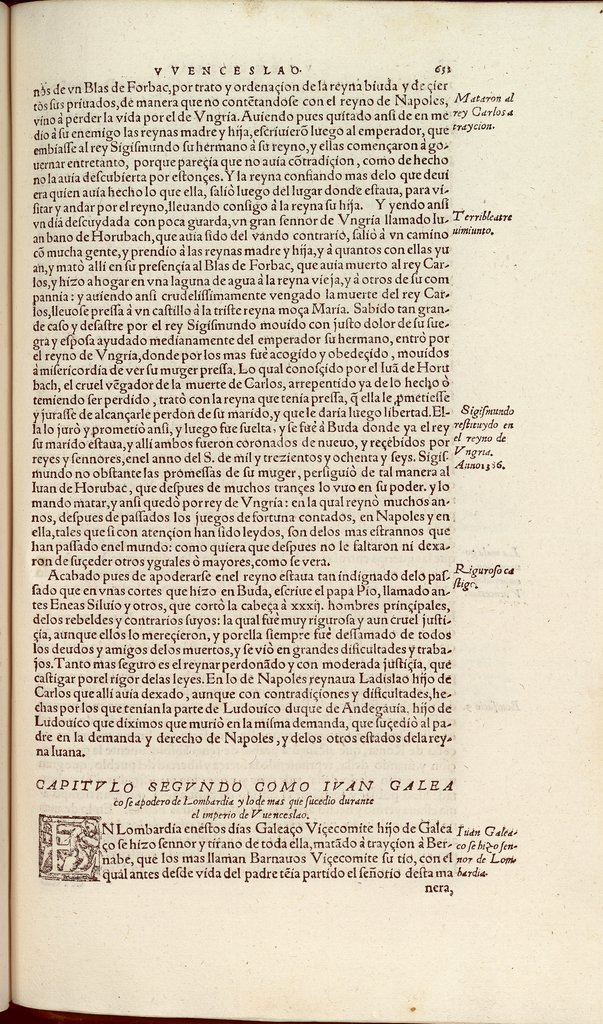 VVENCESLAO. 653
nos de vn Blas de Forbac, por trato y ordenaçion de la reyna biuda y de çier
tos sus priuados, de manera que no contẽtandose con el reyno de Napoles,
vino à perder la vida por el de Vngria. Auiendo pues quitado ansi de en me
dio à su enemigo las reynas madre y hija, escriuierõ luego al emperador, que
embiasse al rey Sigismundo su hermano à su reyno, y ellas començaron à go-
uernar entretanto, porque pareçia que no auia cõtradiçion, como de hecho
no la auia descubierta por estonçes. Y la reyna confiando mas delo que deui
era quien auia hecho lo que ella, saliò luego del lugar donde estaua, para vi-
sitar y andar por el reyno, lleuando consigo à la reyna su hija. Y yendo ansi
vn dia descuydada con poca guarda, vn gran sennor de Vngria llamado Iu-
an bano de Horubach, que auia sido del vando contrario, saliò à vn camino
cõ mucha gente, y prendio à las reynas madre y hija, y à quantos con ellas yu
an, y matò alli en su presençia al Blas de Forbac, que auia muerto al rey Car-
los, y hizo ahogar en vna laguna de agua à la reyna vieja, y à otros de su com
pannia: y auiendo ansi crudelissimamente vengado la muerte del rey Car-
los, lleuose pressa à vn castillo à la triste reyna moça Maria. Sabido tan gran-
de caso y desastre por el rey Sigismundo mouido con justo dolor de su sue-
gra y esposa ayudado medianamente del emperador su hermano, entrò por
el reyno de Vngria, donde por los mas fuè acogido y obedeçido, mouidos
à misericordia de ver su muger pressa. Lo qual conosçido por el Iuã de Horu
bach, el cruel vẽgador de la muerte de Carlos, arrepentido ya de lo hecho ò
temiendo ser perdido, tratò con la reyna que tenia pressa, q̃ ella le prometiesse
y jurasse de alcançarle perdon de su marido, y que le daria luego libertad. El-
la lo jurò y prometiò ansi, y luego fue suelta, y se fuè à Buda donde ya el rey
su marido estaua, y alli ambos fueron coronados de nueuo, y reçebidos por
reyes y sennores, enel anno del S. de mil y trezientos y ochenta y seys. Sigis-
mundo no obstante las promessas de su muger, persiguiò de tal manera al
Iuan de Horubac, que despues de muchos trançes lo vuo en su poder. y lo
mando matar, y ansi quedò por rey de Vngria: en la qual reynò muchos an-
nos, despues de passados los juegos de fortuna contados, en Napoles y en
ella, tales que si con atençion han sido leydos, son delos mas estrannos que
han passado enel mundo: como quiera que despues no le faltaron ni dexa-
ron de suçeder otros yguales ò mayores, como se vera.
Acabado pues de apoderarse enel reyno estaua tan indignado delo pas-
sado que en vnas cortes que hizo en Buda, escriue el papa Pio, llamado an-
tes Eneas Siluio y otros, que cortò la cabeça à xxxij. hombres prinçipales,
delos rebeldes y contrarios suyos: la qual fuè muy rigurosa y aun cruel justi-
çia, aunque ellos lo mereçieron, y por ella siempre fuè desfamado de todos
los deudos y amigos delos muertos, y se viò en grandes dificultades y traba-
jos. Tanto mas seguro es el reynar perdonãdo y con moderada justiçia, que
castigar por el rigor delas leyes. En lo de Napoles reynaua Ladislao hijo de
Carlos que alli auia dexado, aunque con contradiçiones y dificultades, he-
chas por los que tenian la parte de Ludouico duque de Andegauia. hijo de
Ludouico que diximos que murio en la misma demanda, que suçediò al pa-
dre en la demanda y derecho de Napoles, y delos otros estados dela rey-
na Iuana.
Mataron al
rey Carlos a
trayçion.
Terrible atre
uimiunto.
Sigismundo
restituydo en
el reyno de
Vngria.
Anno 1386.
Riguroso ca
stigo.
CAPITVLO SEGVNDO COMO IVAN GALEA
ço se apodero de Lombardia y lo de mas que sucedio durante
el imperio de Vuenceslao.
EN Lombardia enestos dias Galeaço Viçecomite hijo de Galea
ço se hizo sennor y tirano de toda ella, matãdo à trayçion à Ber-
nabe, que los mas llaman Barnauos Viçecomite su tio, con el
qual antes desde vida del padre tẽia partido el señorio desta ma
nera,
Iuan Galea-
co se hizo sen-
nor de Lom
bardia.